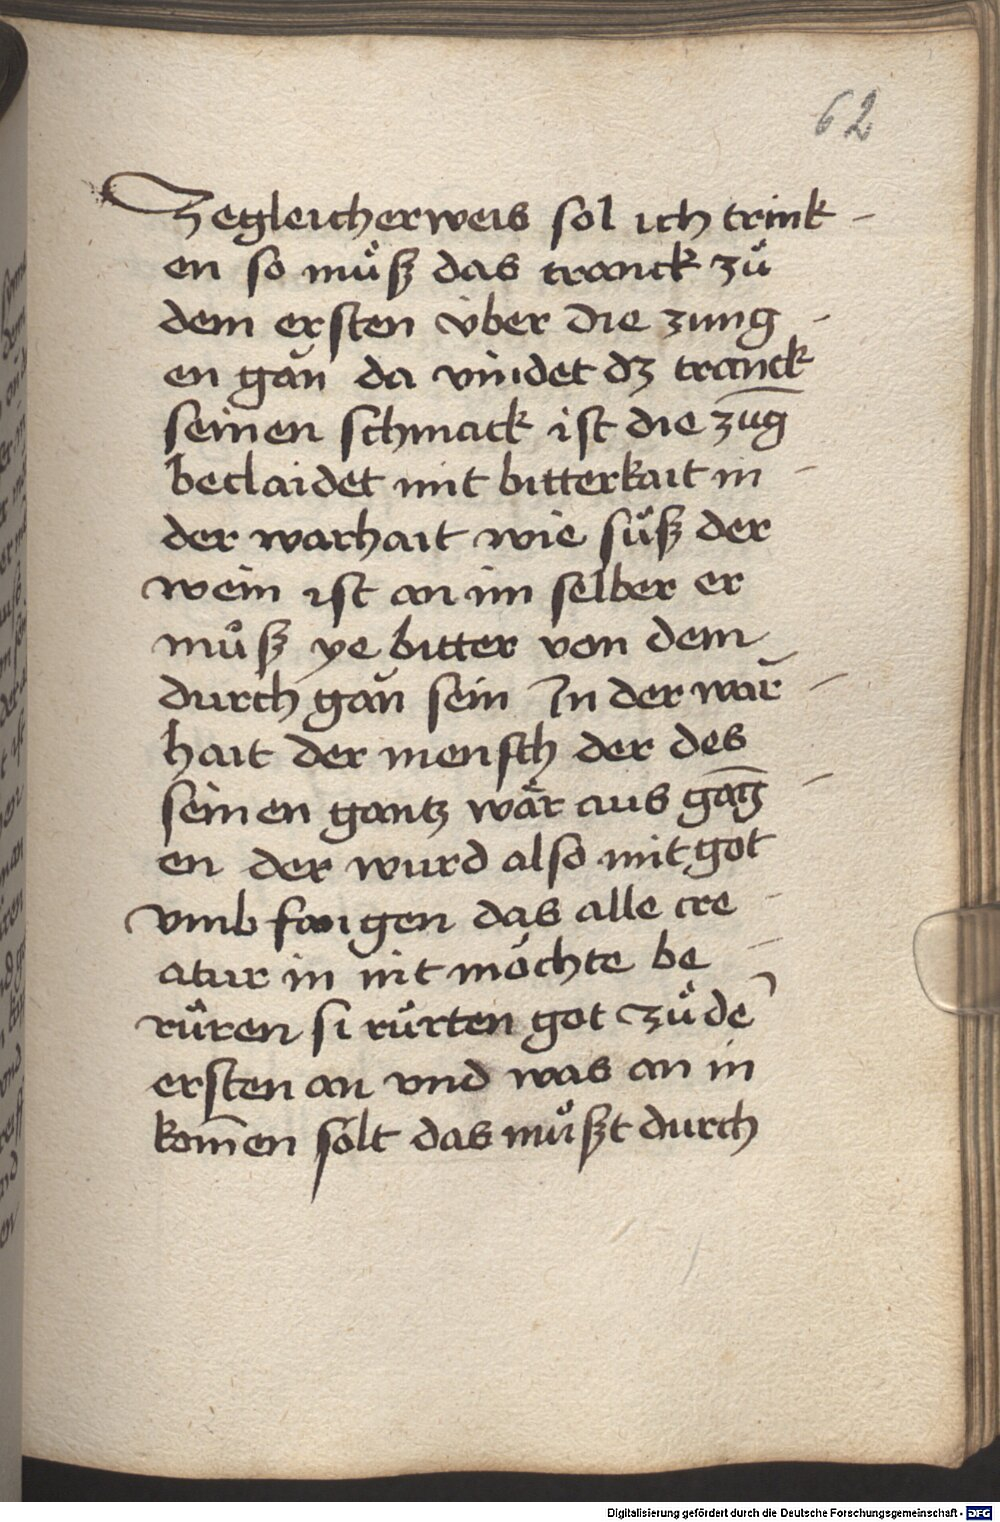 62
Zegleicherweis sol ich trink-
en so muͦſz das tranck zuͦ
dem ersten v̈ber die zung-
en gan da vindet dz tranck
seinen schmack ist die zūg
beclaidet mit bitterkait in-
der warhait wie suͤſz der
wein ist an im selber er
muͦſz ye bitter von dem
durch gan sein In der war-
hait der mensch der des
seinen gantz waͤr aus gāg-
en der wurd also mit got
vmb fangen das alle cre-
atur in nit moͤchte be-
ruͤren si ruͤrten got zuͦ dē
ersten an vnd was an in
kom̄en solt das muͦſzt durch
Digitalisierung gefördert durch die Deutsche Forschungsgemeinschaft - DFG